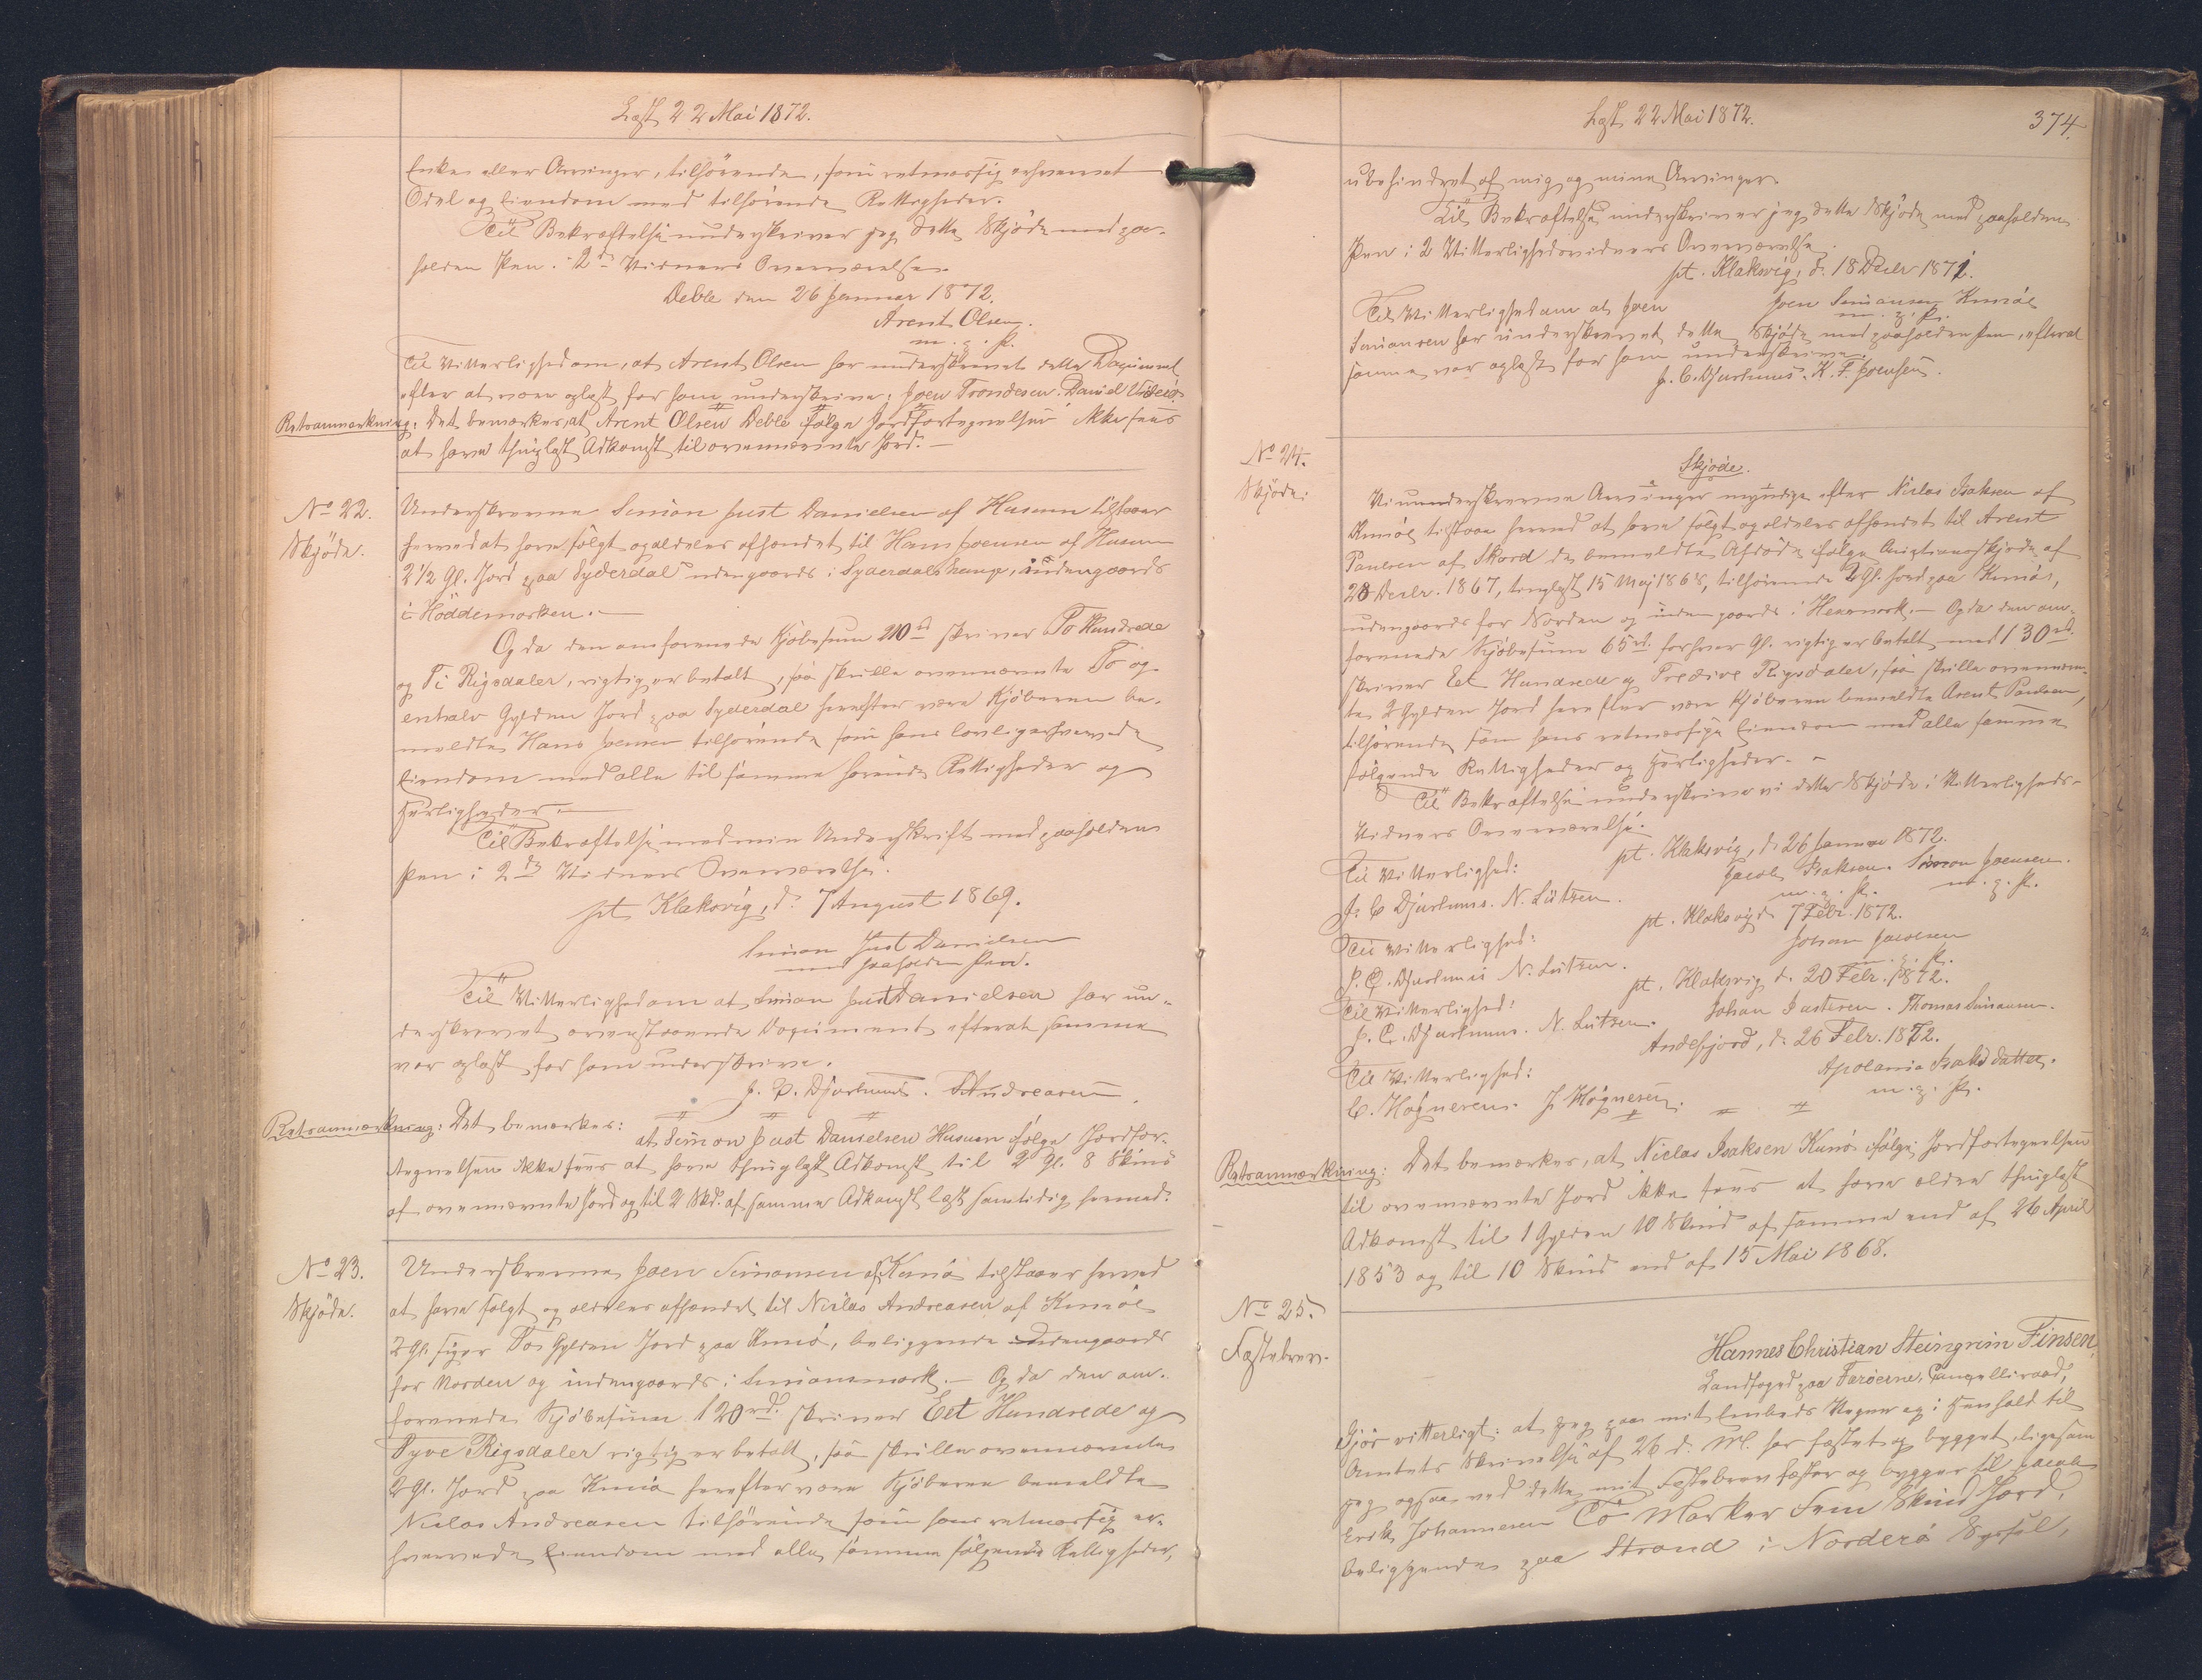 Læst 22 Mai 1872.
Enke eller Arvinger, tilhörende, som retmæssig erhvervet
Odel og Eiendom med tilhörende Rettigheder.
Til Bekræftelse underskriver jeg dette Skjöde med paa-
holden Pen i 2de Vidners Overværelse.
Deble den 26 Januar 1872.
Arent Olsen.
m. p. P.
Til Vitterlighed om, at Arent Olsen har underskrevet dette Document
efter at være oplæst for ham underskrive: Joen Trondesen. Daniel
Retsanmærkning: Det bemærkes, at Arent Olsen Deble ifölge Jordfortegnelsen ikke sees
at have thinglæst Adkomst til ovennævnte Jord.
No 22.
Skjöde.
Underskrevne Simon Just Danielsen af Husum tilstaaer
hermed at have solgt og aldeles afhændet til Hans Joensen af Husum
2 1/2 Gl. Jord paa Syderdal udengaards i Syderdalshauge, indengaards
i Höddemarken.
Og da den omforenede Kjöbesum 210 rd skriver To Hundrede
og Ti Rigsdaler, rigtig er betalt, saa skulle ovennævnte To og
enhalv Gylden Jord paa Syderdal herefter være Kjöberen be-
meldte Hans Joensen tilhörende som hans lovlig erhvervede
Eiendom med alle til samme hörende Rettigheder og
Herligheder.
Til Bekræftelse med min Underskrift med paaholden
Pen i 2de Vidners Overværelse.
pt Klaksvig, d. 7 August 1869.
Simon Just Danielsen
med paaholden Pen.
Til Vitterlighed om at Simon Just Danielsen har un-
derskrevet ovenstaaende Document efterat samme
var oplæst for ham underskrive.
J. C. Djurhuus. Andreasen.
Retsanmærkning: Det bemærkes: at Simon Just Danielsen Husum ifölge Jordfor-
tegnelsen ikke sees at have thinglæst Adkomst til 2 Gl. 8 Skind
af ovennævnte Jord og til 2 Skd. af samme Adkomst læst samtidig hermed.
No 23.
Skjöde.
Underskrevne Joen Simonsen af Kunö tilstaaer herved
at have solgt og aldeles afhændet til Niclas Andreasen af Kunöe
2 Gl. siger To Gylden Jord paa Kunö, beliggende udengaards
for Norden og indengaards i Simonsmork. Og da den om-
forenede Kjöbesum 120 rd. skriver Eet Hundrede og
Tyve Rigsdaler rigtig er betalt, saa skulle ovennævnte
2 Gl. Jord paa Kunö herefter være Kjöberen bemeldte
Niclas Andreasen tilhörende som hans retmæssig er-
hvervede Eiendom med alle samme fölgende Rettigheder,
Læst 22 Mai 1872.
374.
ubehindret af mig og mine Arvinger.
Til Bekræftelse underskriver jeg dette Skjöde med paaholden
Pen i 2 Vitterlighedsvidners Overværelse.
pt. Klaksvig, d. 18 Decbr 1871.
Til Vitterlighed om at Joen
Joen Simonsen Kunöe
m. p. P.
Simonsen har underskrevet dette Skjöde med paaholden Pen, efterat
samme var oplæst for ham underskrive.
J. C. Djurhuus. K. F. Joensen.
No 24.
Skjöde.
Skjöde.
Vi underskrevne Arvinger myndige efter Niclas Isaksen af
Kunöe tilstaae herved at have solgt og aldeles afhændet til Arent
Poulsen af Skord de bemeldte Afdöde ifölge Auctionsskjöde af
28 Decbr. 1867, tinglæst 15 Maj 1868, tilhörende 2 Gl. Jord paa Kunöe,
udengaards for Norden og indengaards i Og da den om-
forenede Kjöbesum 65 rd. for hver Gl. rigtig er betalt med 130 rd.
skriver Eet Hundrede og Tredive Rigsdaler, saa skulle ovennævn-
te 2 Gylden Jord herefter være Kjöberen bemeldte Arent Poulsen,
tilhörende som hans retmæssige Eiendom med alle samme
fölgende Rettigheder og Herligheder.
Til Bekræftelse underskrive vi dette Skjöde i Vitterligheds-
Vidners Overværelse.
pt. Klaksvig, d. 26 Januar 1872.
Til Vitterlighed:
Jacob Isaksen. Simon Joensen.
m. p. P. m. p. P.
J. C. Djurhuus. N. Lützen.
pt. Klaksvig d. 7 Febr. 1872.
Til Vitterlighed:
Johan Jacobsen
m. p. P.
J. C. Djurhuus N. Lützen.
pt. Klaksvig d. 20 Febr. 1872.
Til Vitterlighed:
Johan Justesen. Thomas Simonsen.
J. C. Djurhuus. N. Lützen.
Andefjord, d. 26 Febr. 1872.
Til Vitterlighed:
Apolonia Isaksdatter.
m. p. P.
C. Högnesen. J. Högnesen.
Retsanmærkning: Det bemærkes, at Niclas Isaksen Kunö ifölge Jordfortegnelsen
til ovennævnte Jord ikke sees at have ældre thinglæst
Adkomst til 1 Gylden 10 Skind af samme end af 26 April
1853 og til 10 Skind end af 15 Mai 1868.
No 25.
Fæstebrev.
Hannes Christian Steingrim Finsen,
Landfoged paa Færöerne, Cancelliraad,
Gjör vitterligt: at jeg paa mit Embeds Vegne og i Henhold til
Amtets Skrivelse af 26 d. M. har fæstet og bygget, ligesom
jeg ogsaa ved dette mit Fæstebrev fæster og bygger til Jacob
Erik Johannesen To Marker Fem Skind Jord,
beliggende paa Strond i Norderö Syssel,